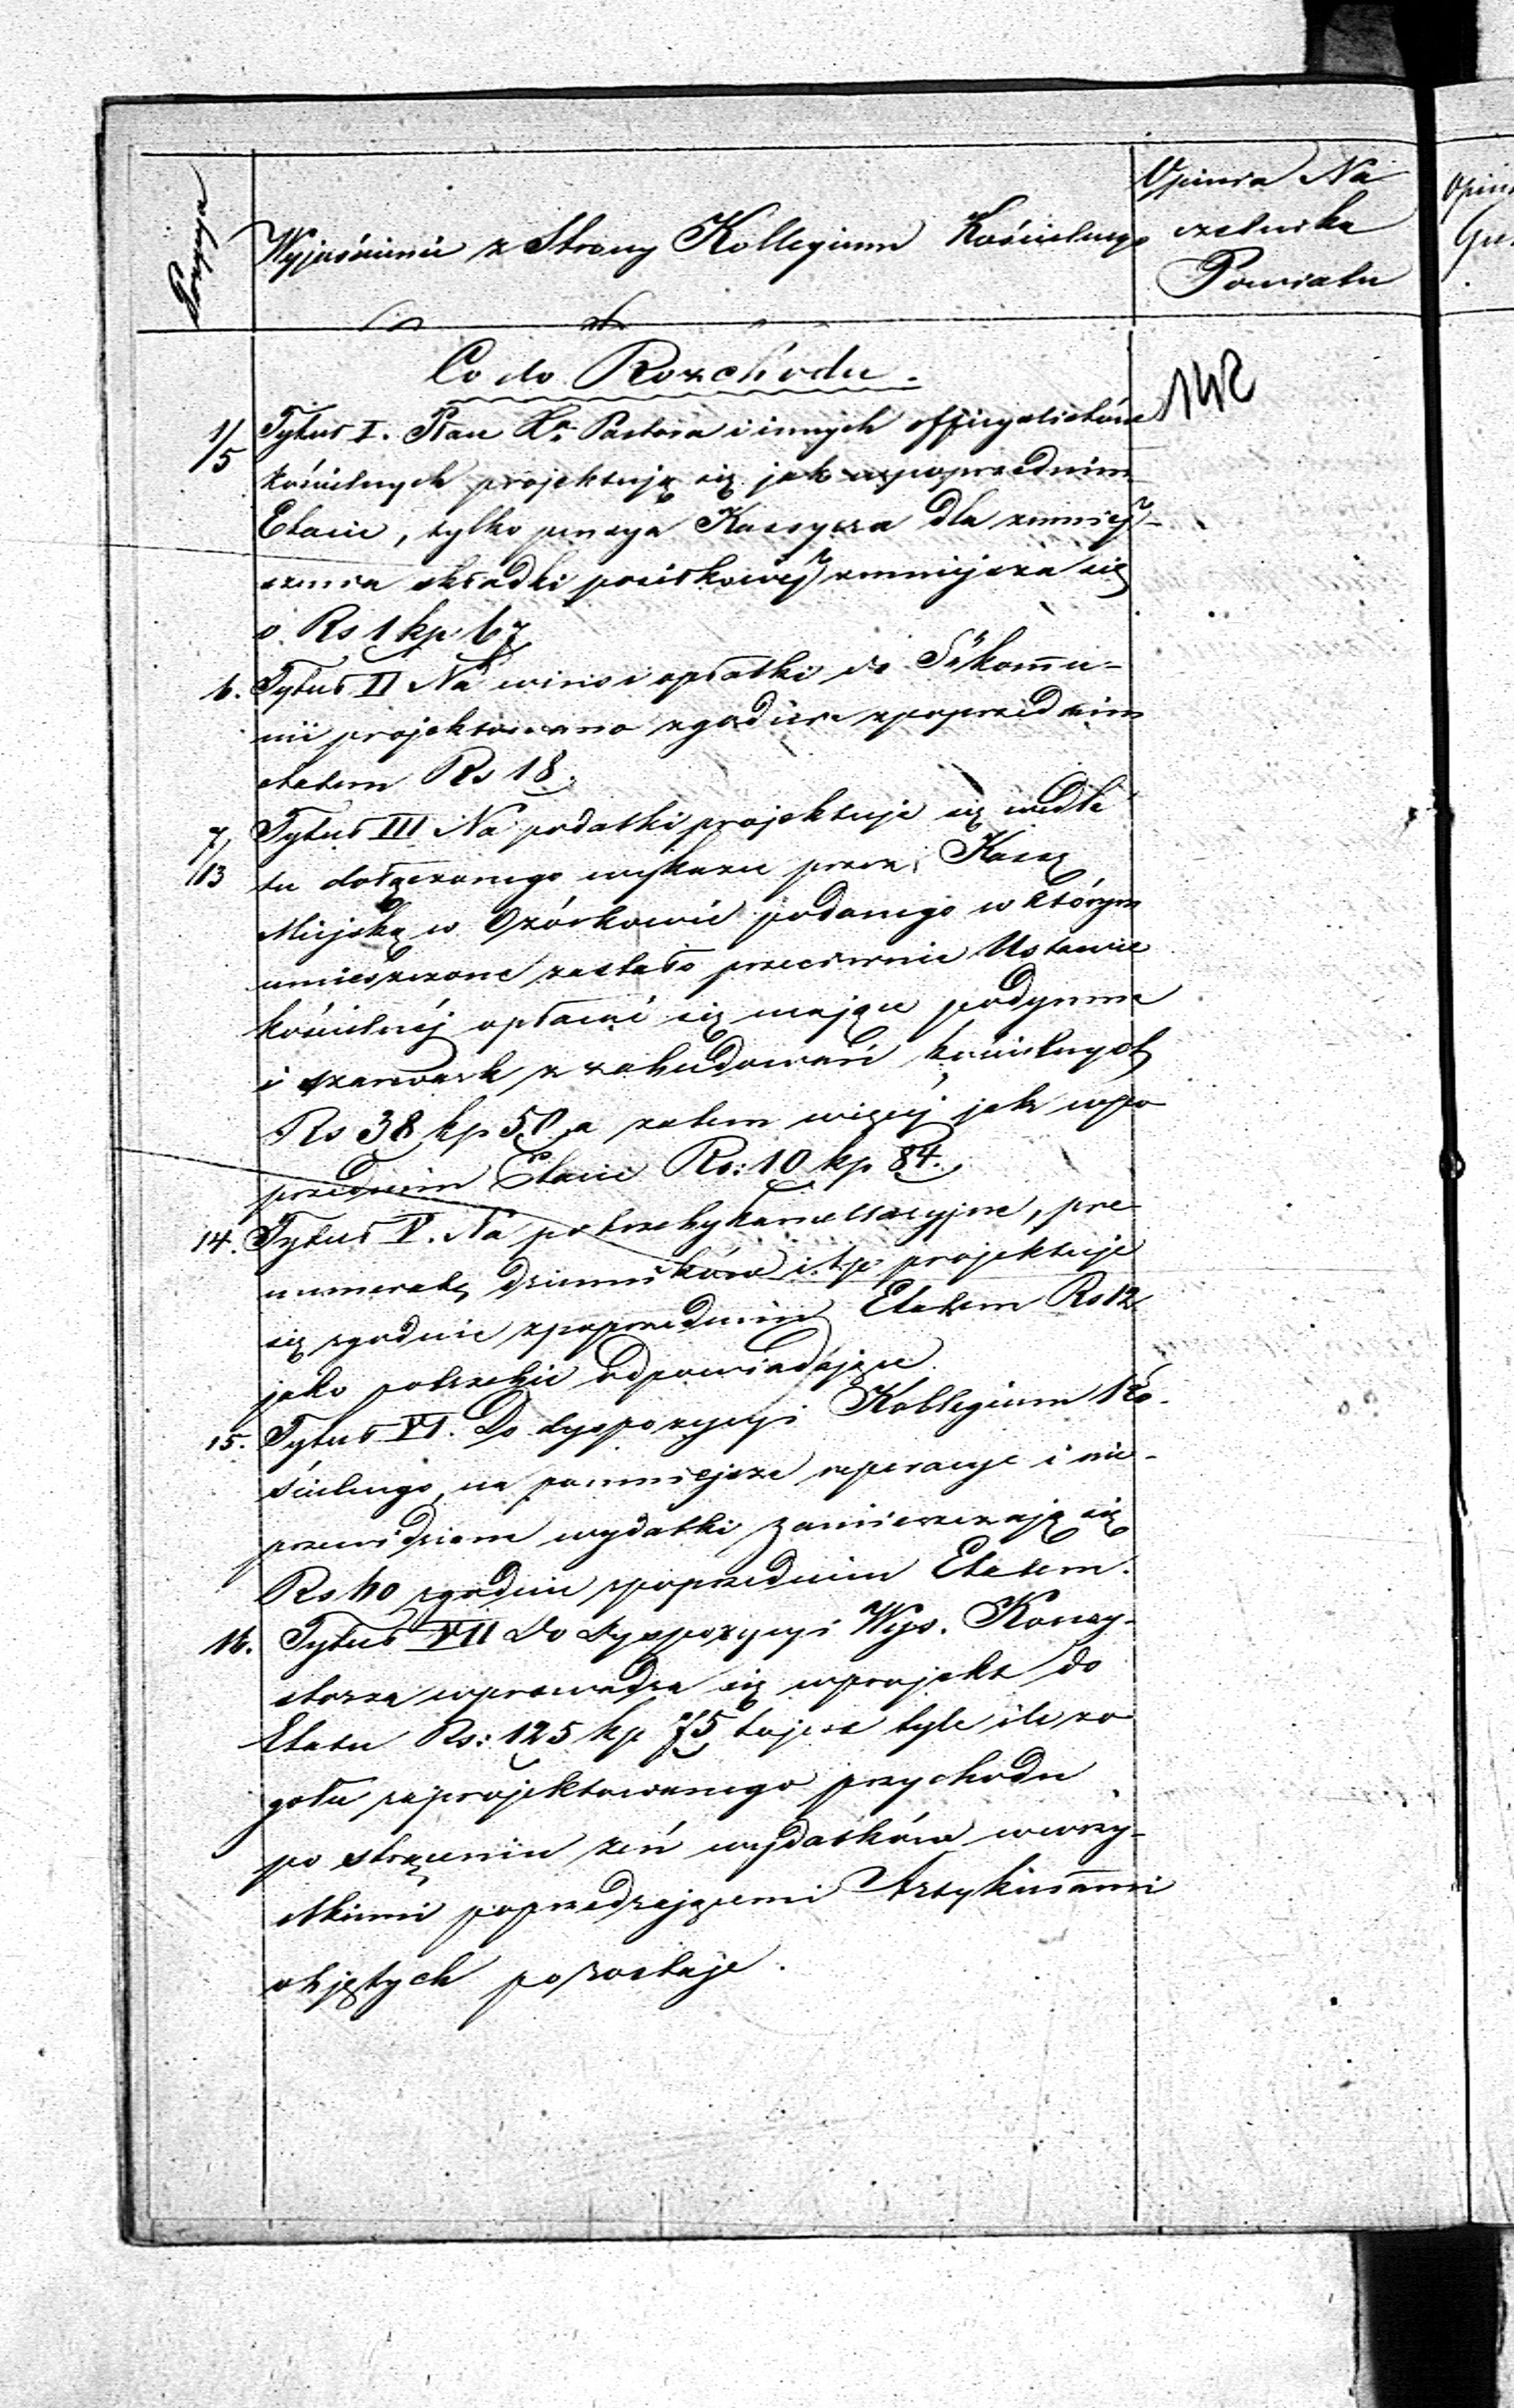 Pozycya
Wyjaśnienie z Strony Kollegium Kościelnego
Opinia Na
czelnika
Powiatu
Co do Rozchodu.
1/5 Tytuł I. Płace Xa. Pastora i innych officyalistów
kościelnych projektują się jak w poprzednim
Etacie, tylko pensya Kassyera dla zmniej-
szenia składki posiłkowéj zmniejsza się
o Rs 1 kp 67
6. Tytuł II Na wino i opłatki do Sśkommu-
nii projektowano zgodnie zpoprzednim
etatem Rs 18.
7/13 Tytuł III Na podatki projektuje się wedle
tu dołączonego wykazu przez Kassę
Miejską w Ozórkowie podanego w którym
umieszczone zostało przeciwnie Ustawie
kościelnéj opłacać się mające podymne
i szarwark z zabudowań kościelnych
Rs 38 kp 50 a zatem więcéj jak wpo
przednim Etacie Rs: 10 kp 84.
14. Tytuł V. Na potrzeby kancellaryjne, pre
numeratę dzienników i.t.p. projektuje
się zgodnie zpoprzednim Etatem Rs 12
jako potrzebie odpowiadające.
15. Tytuł VI. Do dyspozycyi Kollegium Ko-
ścielnego, na pomniejsze reperacye i nie-
przewidziane wydatki zamieszczają się
Rs 40 zgodnie zpoprzednim Etatem.
16. Tytuł VII Do dyspozycyi Wys. Konsy-
storza wprowadza się wprojekt do
Etatu Rs: 125 kp 75 tojest tyle ile zo
gółu zaprojektowanego przychodu
po strąceniu zeń wydatków wwszy-
stkiemi poprzedzającemi Artykułami
objętych pozostaje.
142